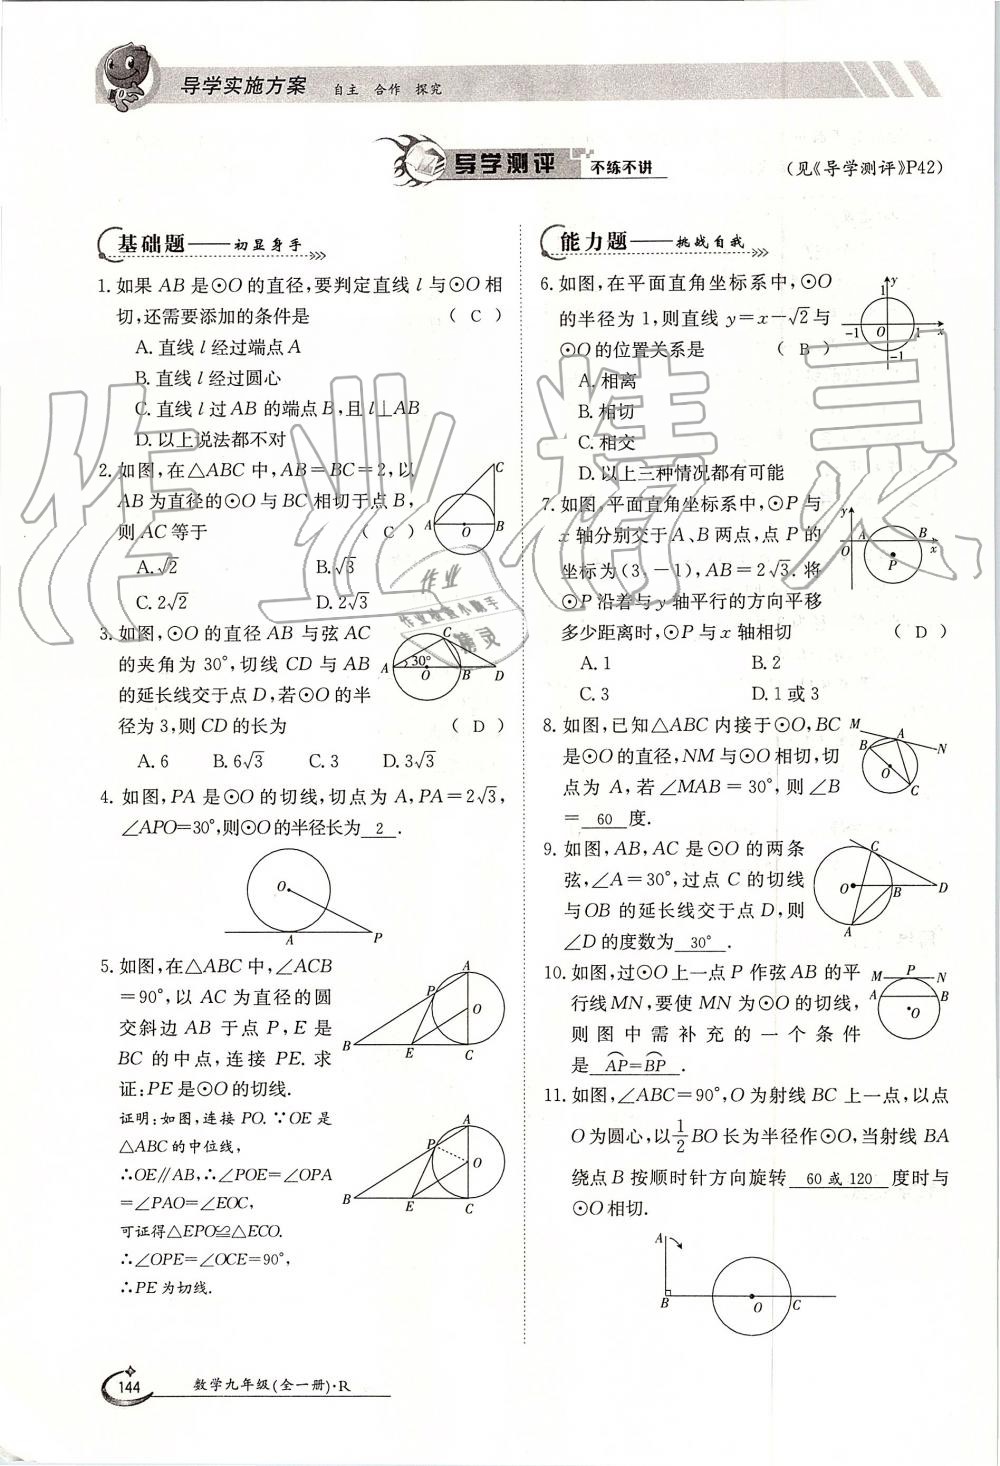 导学实施方案 自主 合作 探究
导学测评 不练不讲
(见《导学测评》P42)
基础题——初显身手
1. 如果 AB 是⊙O 的直径,要判定直线 l 与⊙O 相
切,还需要添加的条件是 ( C )
A. 直线 l 经过端点 A
B. 直线 l 经过圆心
C. 直线 l 过 AB 的端点 B,且 l⊥AB
D. 以上说法都不对
2. 如图,在△ABC 中,AB=BC=2,以
AB 为直径的⊙O 与 BC 相切于点 B,
则 AC 等于 ( C )
A.√2 B.√3
C. 2√2 D. 2√3
C
A O B
3. 如图,⊙O 的直径 AB 与弦 AC
的夹角为 30°,切线 CD 与 AB
的延长线交于点 D,若⊙O 的半
径为 3,则 CD 的长为 ( D )
A. 6 B. 6√3 C. 3 D. 3√3
C
A 30° O B D
4. 如图,PA 是⊙O 的切线,切点为 A,PA=2√3,
∠APO=30°,则⊙O 的半径长为 2 .
O
A P
5. 如图,在△ABC 中,∠ACB
=90°,以 AC 为直径的圆
交斜边 AB 于点 P,E 是
BC 的中点,连接 PE. 求
证:PE 是⊙O 的切线.
A
P
O
B E C
证明:如图,连接 PO. ∵OE 是
△ABC 的中位线,
∴OE∥AB,∴∠POE=∠OPA
=∠PAO=∠EOC,
可证得△EPO≌△ECO.
∴∠OPE=∠OCE=90°,
∴PE 为切线.
A
P
O
B E C
能力题——挑战自我
6. 如图,在平面直角坐标系中,⊙O
的半径为 1,则直线 y=x-√2与
⊙O 的位置关系是 ( B )
A. 相离
B. 相切
C. 相交
D. 以上三种情况都有可能
y
1
-1 O 1 x
-1
7. 如图,平面直角坐标系中,⊙P 与
x 轴分别交于 A、B 两点,点 P 的
坐标为(3,-1),AB=2√3. 将
⊙P 沿着与 y 轴平行的方向平移
多少距离时,⊙P 与 x 轴相切 ( D )
A. 1 B. 2
C. 3 D. 1 或 3
y
O A B x
P
8. 如图,已知△ABC 内接于⊙O,BC
是⊙O 的直径,NM 与⊙O 相切,切
点为 A,若∠MAB=30°,则∠B
= 60 度.
M A N
B
O
C
9. 如图,AB,AC 是⊙O 的两条
弦,∠A=30°,过点 C 的切线
与OB 的延长线交于点 D,则
∠D 的度数为 30° .
C
O B D
A
10. 如图,过⊙O 上一点 P 作弦 AB 的平
行线 MN,要使 MN 为⊙O 的切线,
则图中需补充的一个条件
是 AP=BP .
M P N
A B
O
11. 如图,∠ABC=90°,O 为射线 BC 上一点,以点
O 为圆心,以1/2BO 长为半径作⊙O,当射线 BA
绕点 B 按顺时针方向旋转 60 或 120 度时与
⊙O 相切.
A
B O C
144 数学九年级(全一册)·R
作业精灵
作业
作业检查小助手
精灵